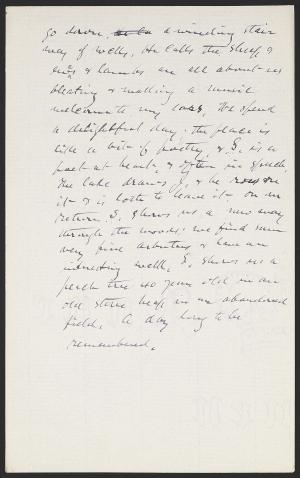 go down, a winding stair
way of wells, He calls the sheep &
ewes & lambs are all about us
bleating & making a music
welcome to my ears, We spend
a delightful day, the place is
like a bit of poetry & E. is a
poet at heart, & often in speech.
The lake draws E, & he rows on
it & is loath to leave it. On our
return E. shows us a new way
through the woods; we find some
very fine arbutus & have an
interesting walk, E. shows us a
peach tree 40 years old in an
old stone heap in an abandoned
field. A day long to be
remembered.